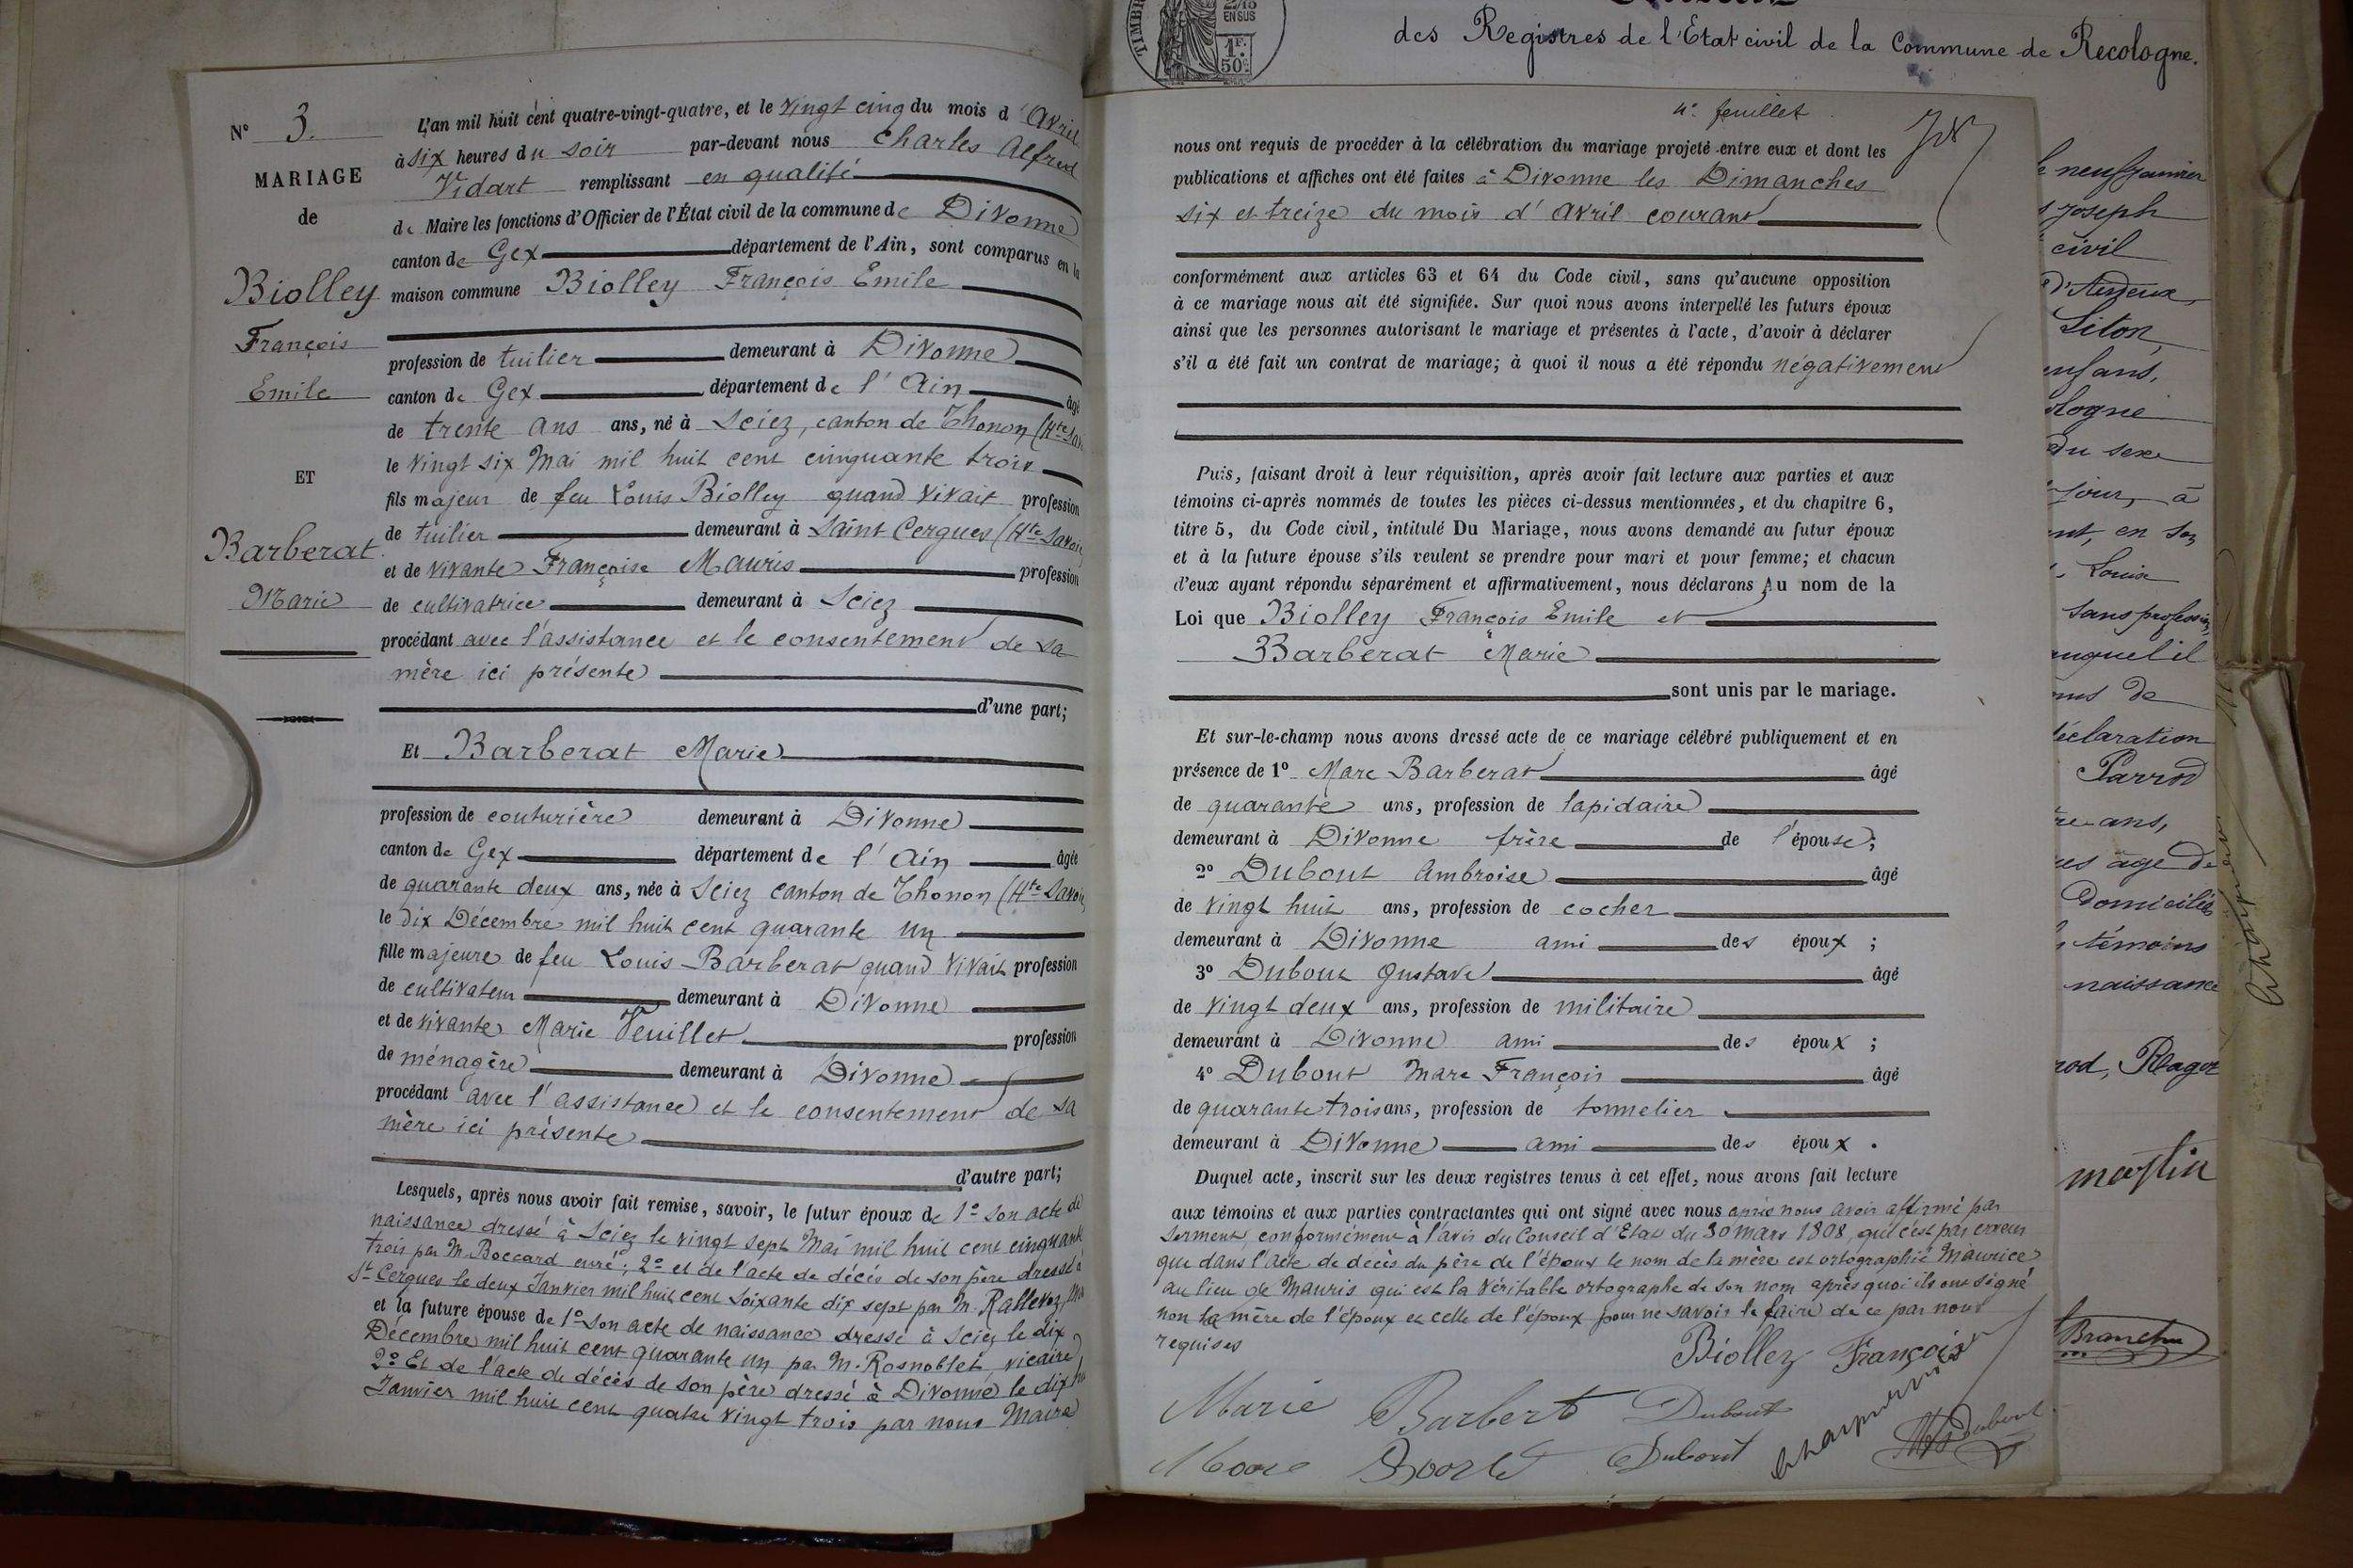 N° 3.
MARIAGE
de
Biolley
François
Emile
ET
Barberat
Marie
L'an mil huit cent quatre-vingt-quatre, et le vingt cinq du mois d'Avril
à six heures du soir par-devant nous Charles Alfred
Vidart remplissant en qualité
de Maire les fonctions d'Officier de l'État civil de la commune de Divonne
canton de Gex département de l'Ain, sont comparus en la
maison commune Biolley François Emile
profession de tuilier demeurant à Divonne
canton de Gex département de l'Ain âgé
de trente ans ans, né à Sciez, canton de Thonon (Hte Sav
le vingt six Mai mil huit cent cinquante trois
fils majeur de feu Louis Biolley quand vivait profession
de tuilier demeurant à Saint Cergues (Hte Savoie
et de vivante Françoise Mauris profession
de cultivatrice demeurant à Sciez
procédant avec l'assistance et le consentement de sa
mère ici présente
d'une part;
Et Barberat Marie
profession de couturière demeurant à Divonne
canton de Gex département de l'Ain âgée
de quarante deux ans, née à Sciez canton de Thonon (Hte Savoie
le dix Décembre mil huit cent quarante un
fille majeure de feu Louis Barberat quand vivait profession
de cultivateur demeurant à Divonne
et de vivante Marie Veuillet profession
de ménagère demeurant à Divonne
procédant avec l'assistance et le consentement de sa
mère ici présente
d'autre part;
Lesquels, après nous avoir fait remise, savoir, le futur époux de 1° son acte de
naissance dressé à Sciez le vingt sept Mai mil huit cent cinquante
trois par M. Boccard curé; 2° et de l'acte de décès de son père dressé à
St Cergues le deux Janvier mil huit cent soixante dix sept par M. Rallevoz,
et la future épouse de 1° son acte de naissance dressé à Sciez le dix
Décembre mil huit cent quarante un par M. Rosnoblet, vicaire
2° Et de l'acte de décès de son père dressé à Divonne le dix
Janvier mil huit cent quatre vingt trois par nous Maire
4e feuillet
nous ont requis de procéder à la célébration du mariage projeté entre eux et dont les
publications et affiches ont été faites à Divonne les Dimanches
six et treize du mois d'Avril courant
conformément aux articles 63 et 64 du Code civil, sans qu'aucune opposition
à ce mariage nous ait été signifiée. Sur quoi nous avons interpellé les futurs époux
ainsi que les personnes autorisant le mariage et présentes à l'acte, d'avoir à déclarer
s'il a été fait un contrat de mariage; à quoi il nous a été répondu négativement
Puis, faisant droit à leur réquisition, après avoir fait lecture aux parties et aux
témoins ci-après nommés de toutes les pièces ci-dessus mentionnées, et du chapitre 6,
titre 5, du Code civil, intitulé Du Mariage, nous avons demandé au futur époux
et à la future épouse s'ils veulent se prendre pour mari et pour femme; et chacun
d'eux ayant répondu séparément et affirmativement, nous déclarons Au nom de la
Loi que Biolley François Emile et
Barberat Marie
sont unis par le mariage.
Et sur-le-champ nous avons dressé acte de ce mariage célébré publiquement et en
présence de 1° Marc Barberat âgé
de quarante ans, profession de lapidaire
demeurant à Divonne frère de l'épouse;
2° Dubout Ambroise âgé
de vingt huit ans, profession de cocher
demeurant à Divonne ami des époux;
3° Dubout Gustave âgé
de vingt deux ans, profession de militaire
demeurant à Divonne ami des époux;
4° Dubout Marc François âgé
de quarante trois ans, profession de tonnelier
demeurant à Divonne ami des époux.
Duquel acte, inscrit sur les deux registres tenus à cet effet, nous avons fait lecture
aux témoins et aux parties contractantes qui ont signé avec nous après nous avoir affirmé par
serment, conformément à l'avis du Conseil d'Etat du 30 mars 1808, que c'est par erreur
que dans l'acte de décès du père de l'époux le nom de la mère est ortographié Maurice
au lieu de Mauris qui est la véritable ortographe de son nom après quoi ils ont signé
non la mère de l'époux et celle de l'époux pour ne savoir le faire de ce par nous
requises
Biolley François
Marie Barbert Dubout
Dubout
MF Dubout
TIMBRE
EN SUS
1F.
50c.
des Registres de l'Etat civil de la Commune de Recologne.
le neuf Janvier
Joseph
civil
Liton,
enfans,
ologne
du sexe
jour, à
ent, en son
Louise
sans profession,
auquel il
de
déclaration
Parrod
ans,
âge de
domiciliés
témoins
naissance
rod, Plagot
martin
Branchu